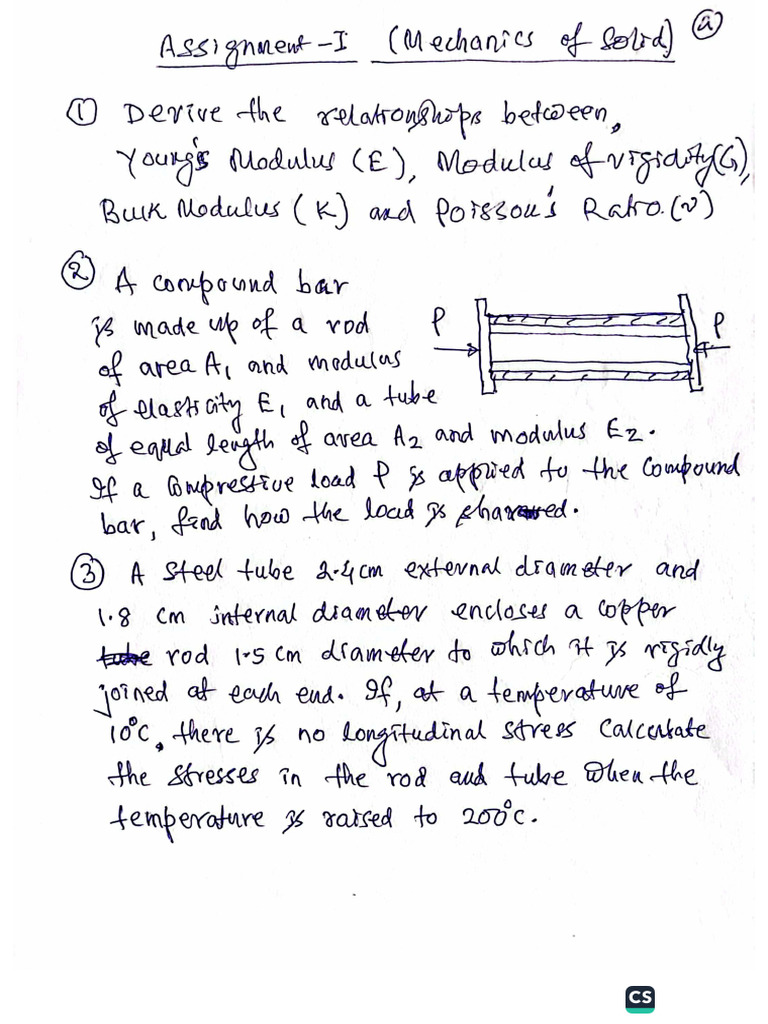 Assignment-I (Mechanics of Solid) a
① Derive the relationships between,
Young's Modulus (E), Modulus of rigidity (G),
Bulk Modulus (K) and Poisson's Ratio. (ν)
② A compound bar
is made up of a rod
of area A₁ and modulus
of elasticity E₁ and a tube
of equal length of area A₂ and modulus E₂.
If a compressive load P is applied to the compound
bar, find how the load is shared.
P P
③ A steel tube 2.4cm external diameter and
1.8 cm internal diameter encloses a copper
rod 1.5 cm diameter to which it is rigidly
joined at each end. If, at a temperature of
10°C, there is no longitudinal stress calculate
the stresses in the rod and tube when the
temperature is raised to 200°C.
CS